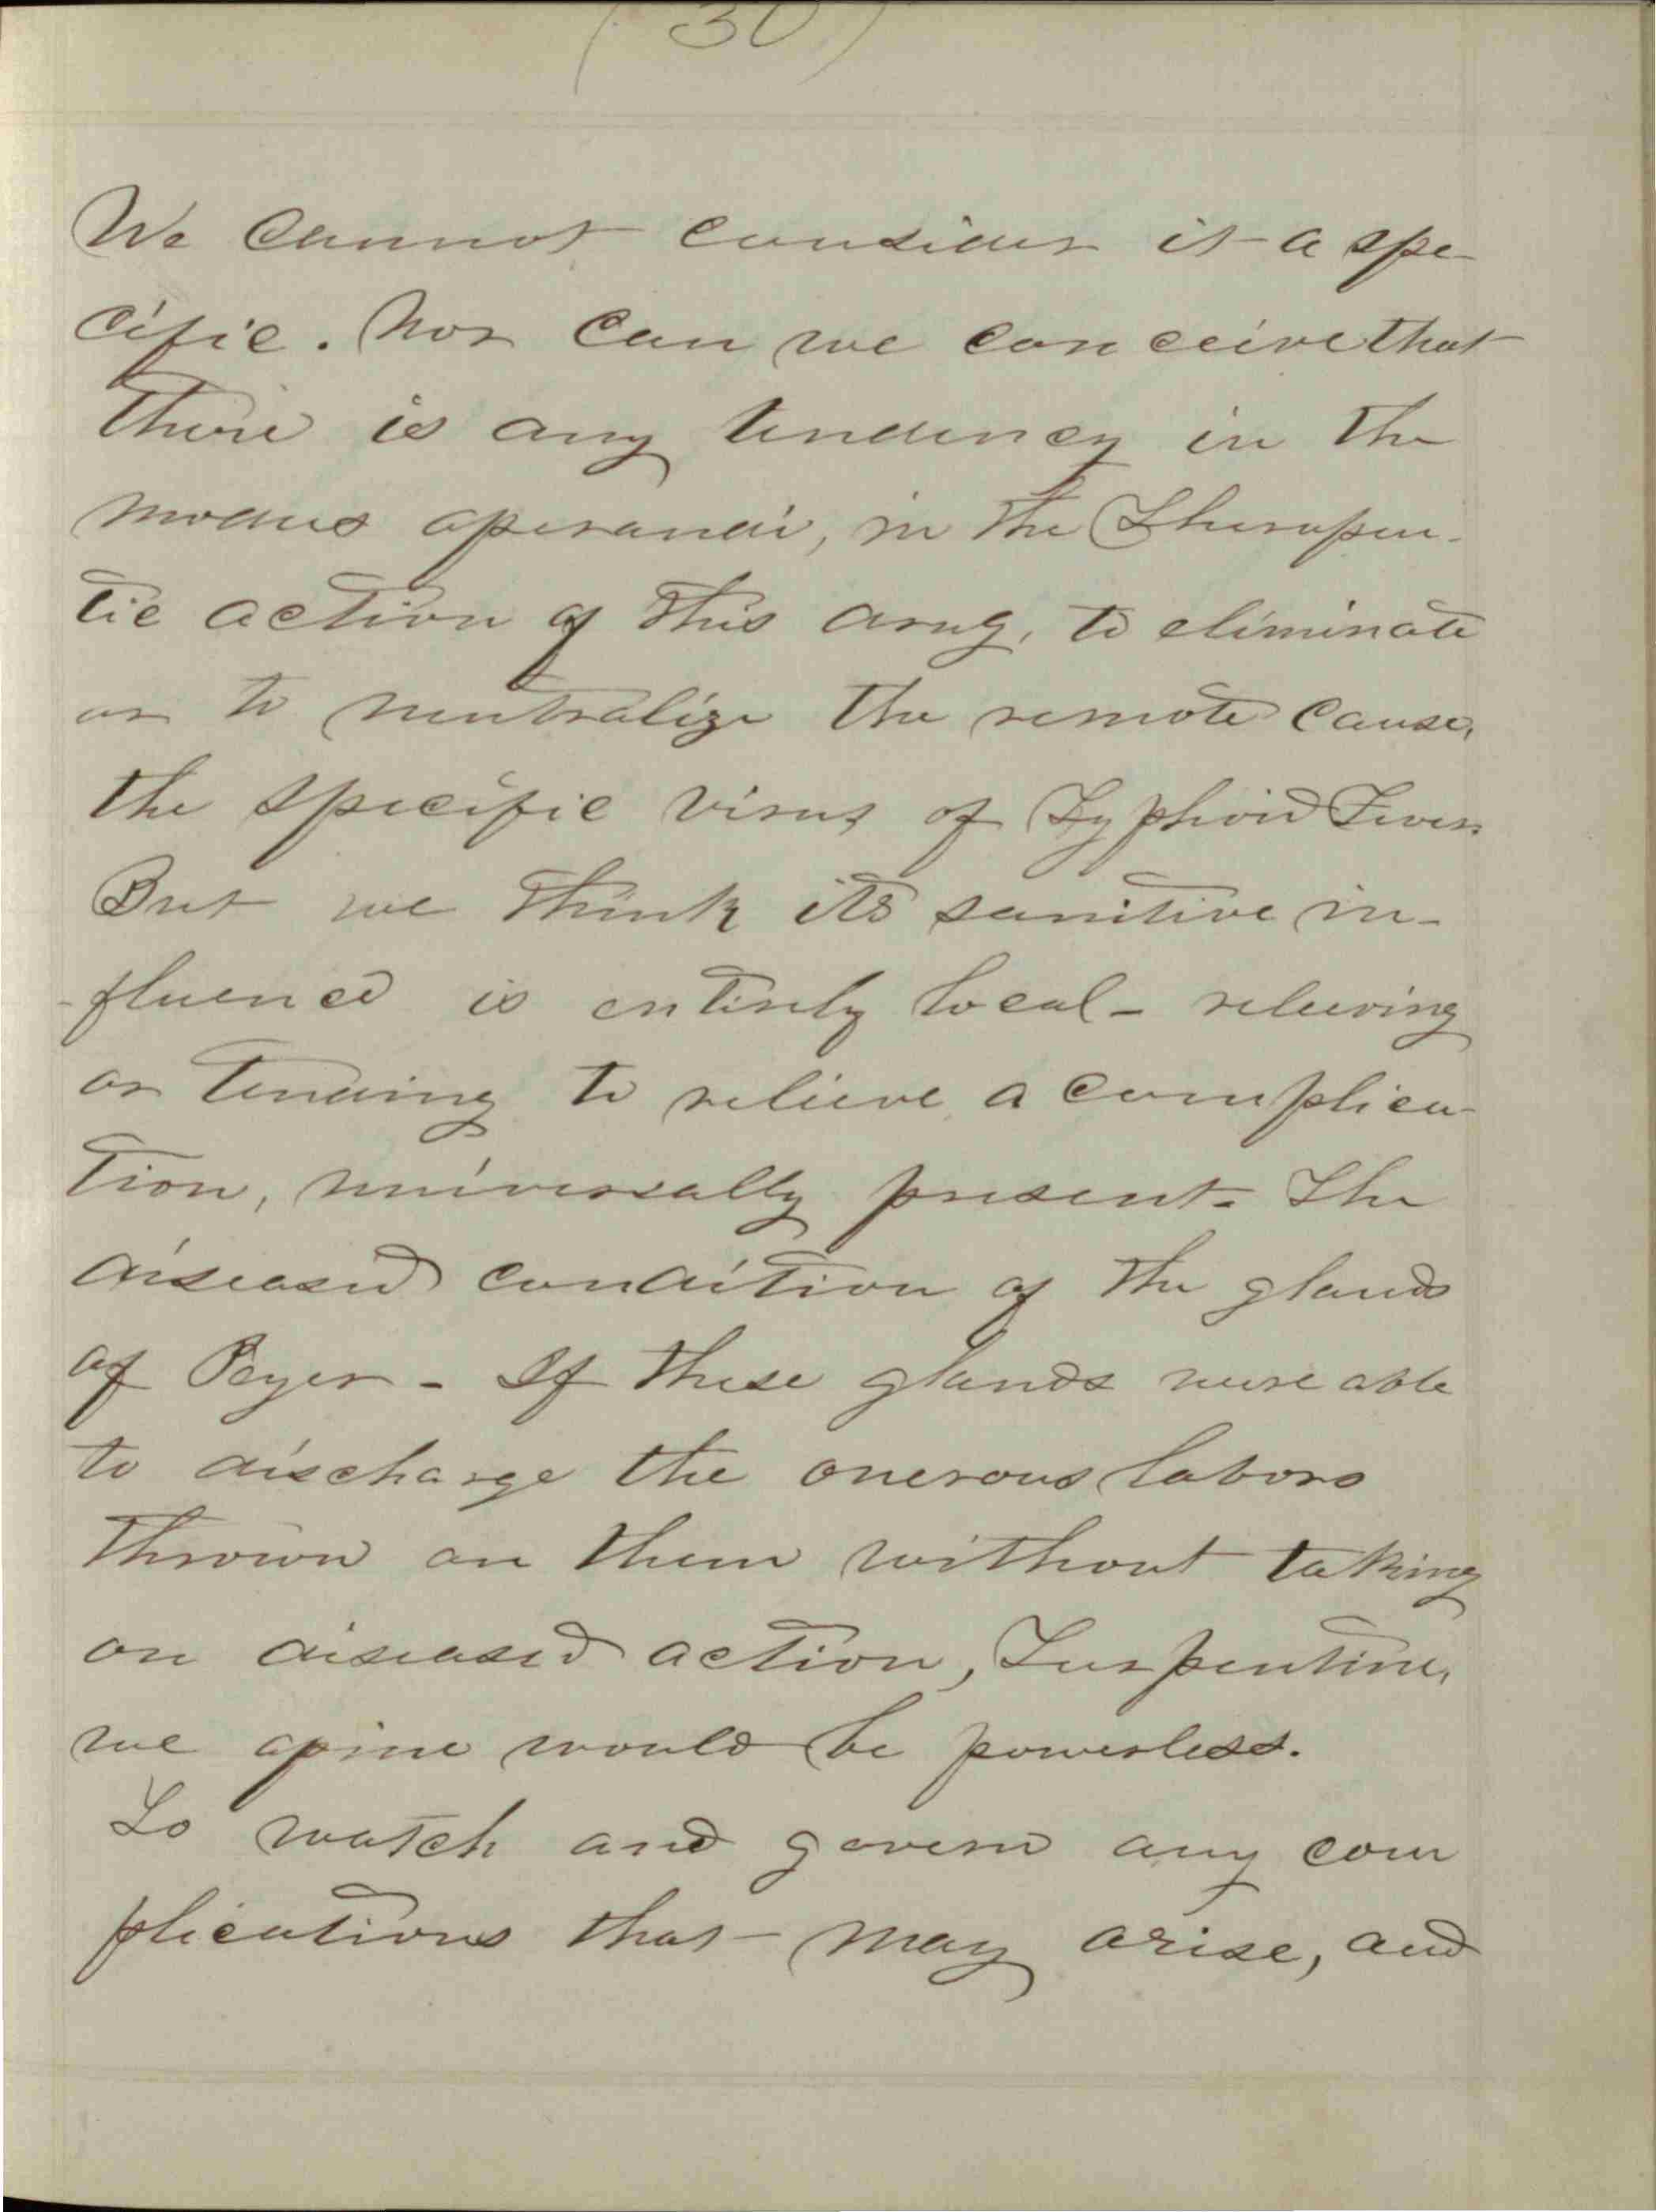 (30)
We cannot consider it a spe-
cific. Nor can we conceive that
there is any tendency in the
modus operandi, in the Therapeu-
tic action of this drug, to eliminate
or to neutralize the remote cause,
the specific virus of Typhoid Fever.
But we think its sanitive in-
-fluence is entirely local - releiving
or tending to relieve a complica-
tion, universally present. The
diseased condition of the glands
of Peyer - If these glands were able
to discharge the onerous labors
thrown on them without taking
on diseased action, Turpentine,
we opine would be powerless.
To watch and govern any com
plications that may arise, and